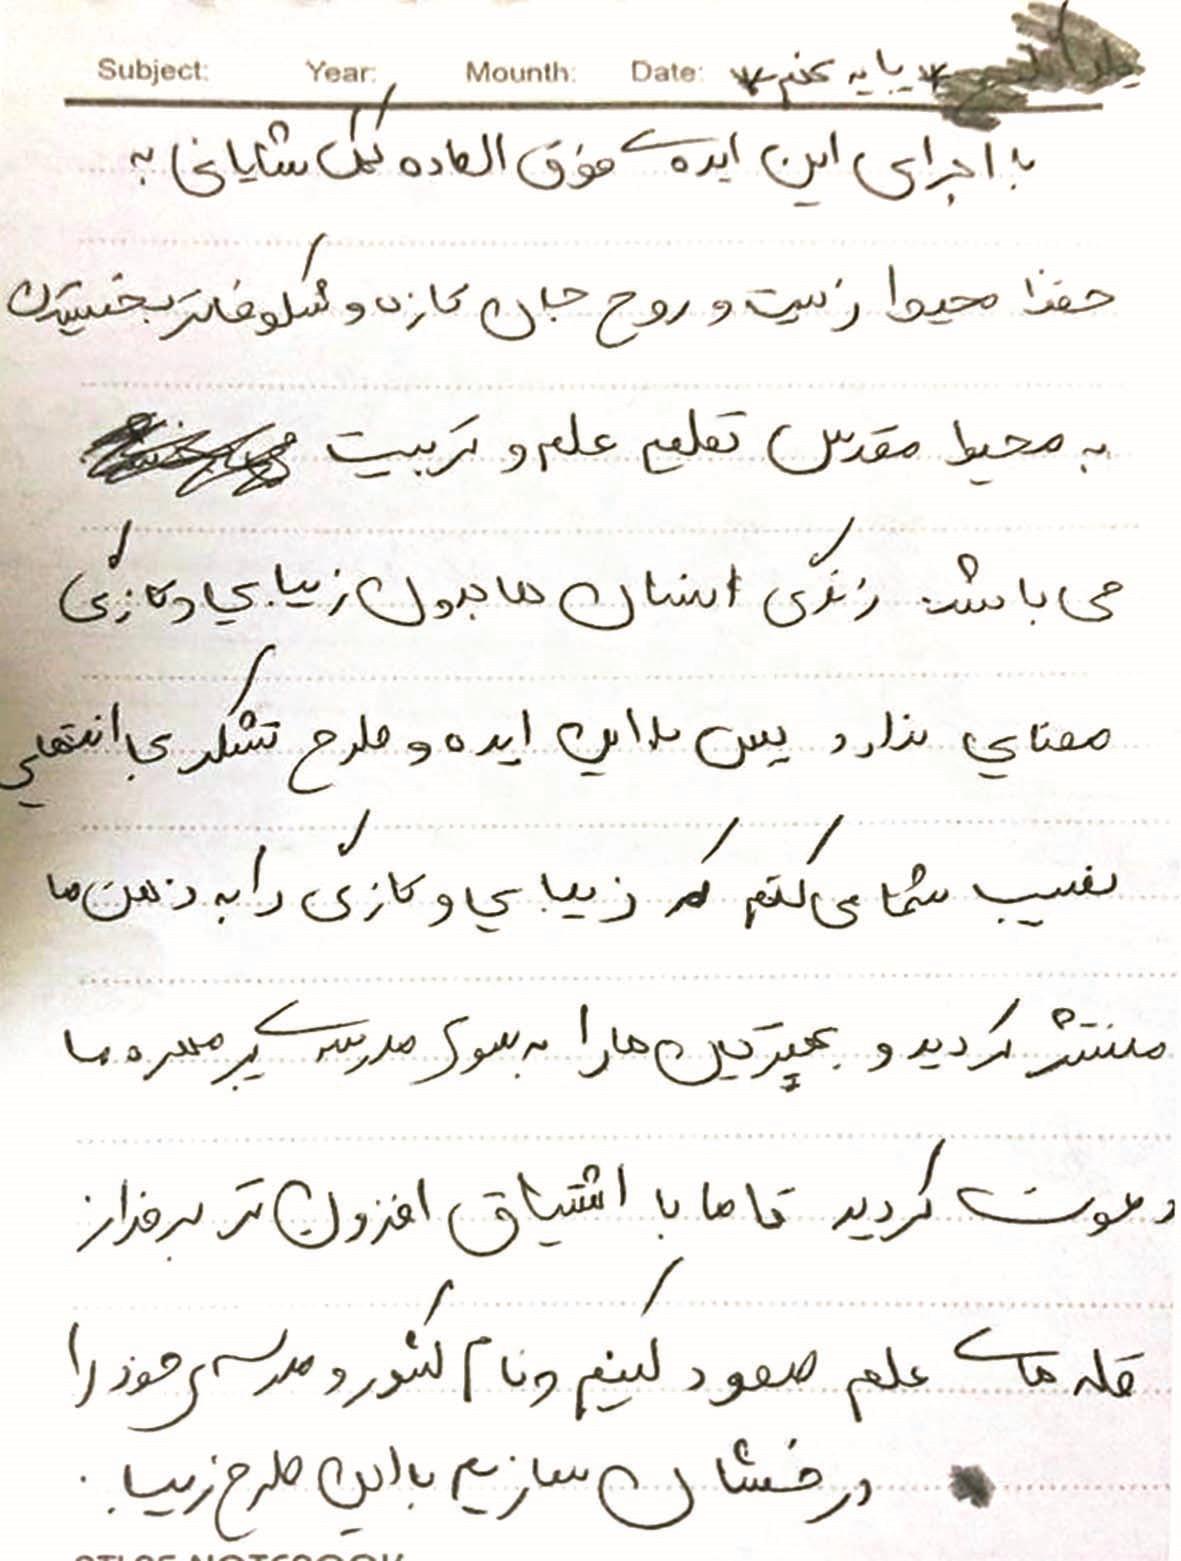 Subject: Year: Mounth: Date: * پایه نهم *
با اجرای این ایده‌ی فوق العاده کمک شایانی به
حفظ محیط زیست و روح جان تازه و شکوفاتر بخشیدن
به محیط مقدس تعلیم علم و تربیت
می باشد. زندگی انسان ها بدون زیبایی و تازگی
معنایی ندارد پس با این ایده و طرح تشکر بی انتهایی
نصیب شما می کنم که زیبایی و تازگی را به ذهن ما
منتشر کردید و بچه‌ترین ما را به سوی مدرسه‌ی پر مهره ما
دعوت کردید تا ما با اشتیاق افزون تر بر فراز
قله های علم صعود کنیم و نام کشور و مدرسه‌ی خود را
درخشان سازیم با این طرح زیبا.
NOTEBOOK